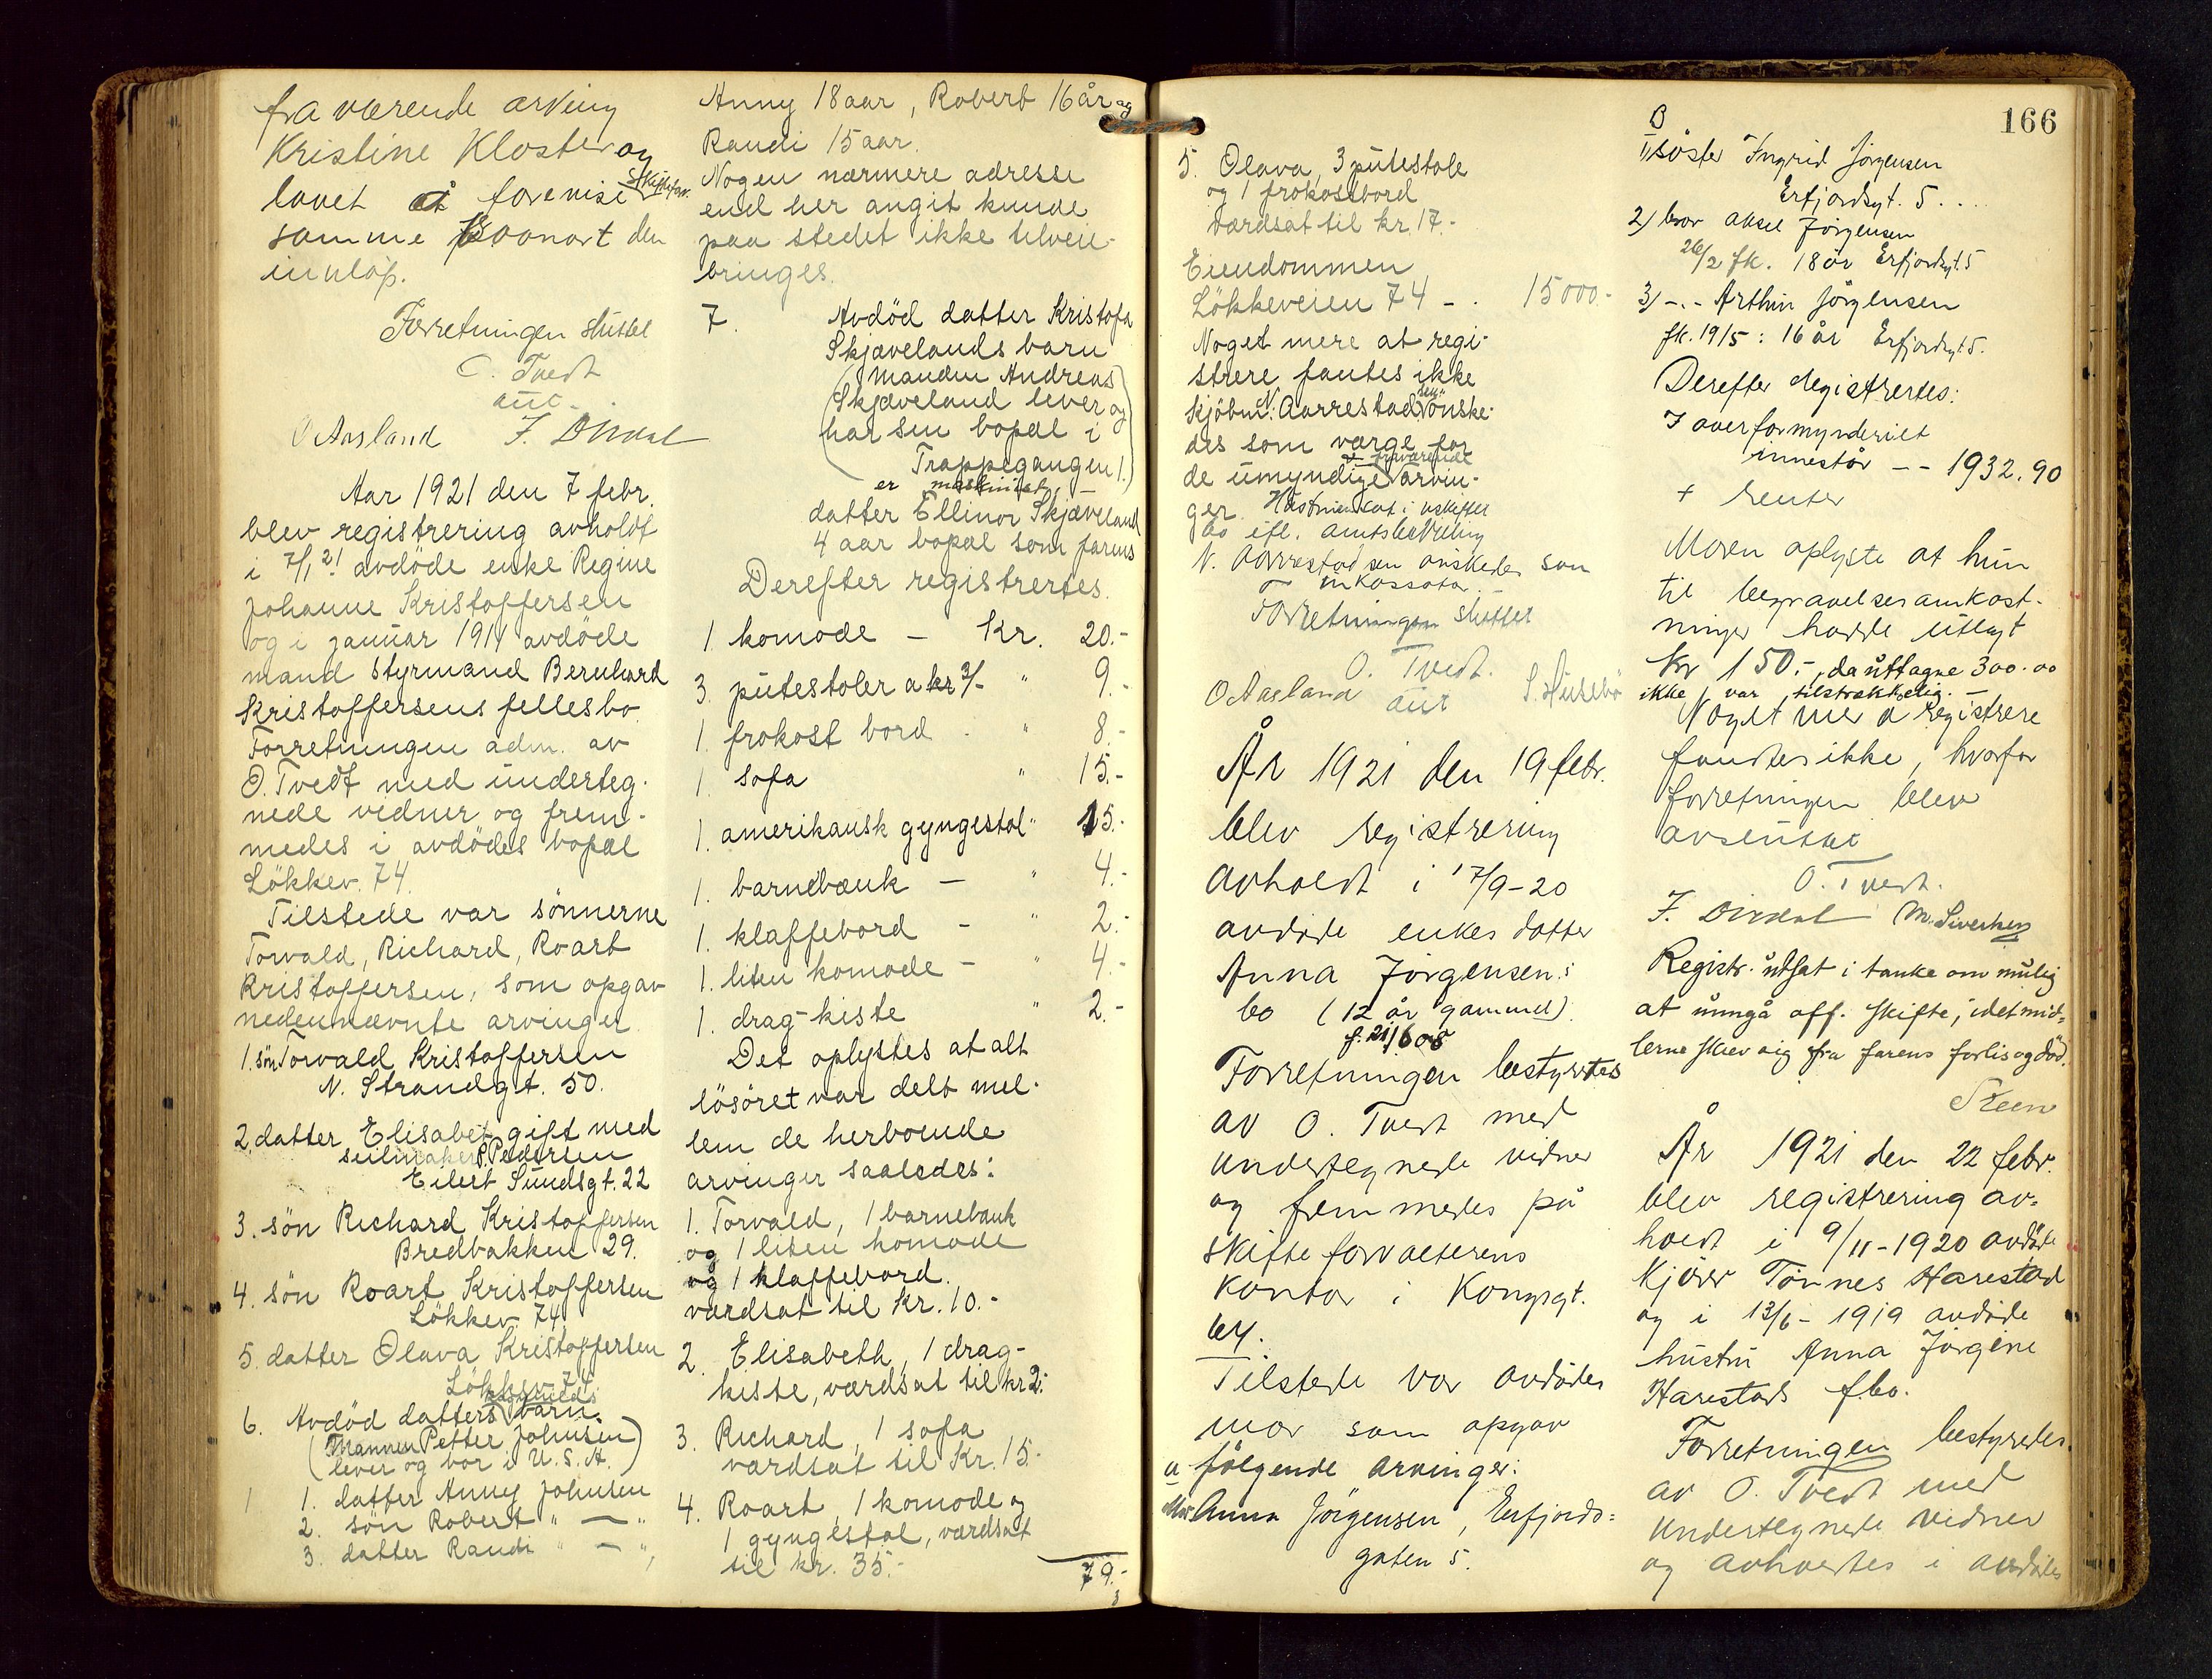 fra værende arving
Kristine Kloster og
lovet at forevise Skiftefor.
samme saasnart den
innløp.
Forretningen sluttet
O. Tvedt
aut.
O Aasland F. Dirdal
Aar 1921 den 7 febr.
blev registrering avholdt
i 7/1 21 avdöde enke Regine
Johanne Kristoffersen
og i januar 1911 avdöde
mand Styrmand Bernhard
Kristoffersens fellesbo.
Forretningen adm. av
O. Tvedt med underteg-
nede vidner og frem-
medes i avdödes bopæl
Lökkev. 74.
Tilstede var sönnerne
Torvald, Richard, Roart
Kristoffersen, som opgav
nedennævnte arvinger
1. sön Torvald Kristoffersen
N. Strandgt. 50.
2. datter Elisabet gift med
seilmaker P. Pedersen
Eilert Sundsgt. 22
3. sön Richard Kristoffersen
Bredbakken 29.
4. sön Roart Kristoffersen
Lökkev. 74.
5. datter Olava Kristoffersen
Lökkev. 74
6. Avdöd datters barn.
(Mannen Petter Johnsen
lever og bor i U.S.A.)
1. datter Anny Johnsen
2. sön Robert " — "
3. datter Randi " — "
Anny 18 aar, Robert 16 år og
Randi 15 aar.
Nogen nærmere adresse
end her angit kunde
paa stedet ikke tilveie-
bringes.
7. Avdöd datter Kristofa
Skjævelands barn
(Manden Andreas
Skjæveland lever og
har sin bopæl i
Trappegangen 1.)
er maskinist,
datter Ellinor Skjæveland
4 aar bopæl som farens
Derefter registrertes.
1 komode — Kr. 20.-
3 putestoler a kr 3/- " 9.-
1. frokost bord - " 8.-
1. sofa " 15.-
1. amerikansk gyngestol " 15.-
1. barnebænk — " 4.-
1. klaffebord - " 2.-
1. liten komode — " 4.-
1. drag-kiste " 2.-
Det oplystes at alt
lösöret var delt mel-
lem de herboende
arvinger saaledes:
1. Torvald, 1 barnebænk
og 1 liten komode
og 1 klaffebord.
værdsat til Kr. 10.-
2. Elisabeth, 1 drag-
kiste, værdsat til kr 2.-
3. Richard, 1 sofa
værdsat til Kr. 15.-
4. Roart, 1 komode og
1 gyngestol, værdsat
til kr. 35.-
79.-
166
5. Olava, 3 putestole
og 1 frokostbord
værdsat til kr. 17.-
Eiendommen
Lökkeveien 74 - . 15000.-
Noget mere at regi-
strere fantes ikke
Kjöbm. N. Aarrestad sen. önske-
des som værge for
de umyndige & fraværende arvin-
ger. Hustruen sat i uskiftet
bo ifl. amtsbevilling
N. Aarrestad sen önskedes som
inkassator.
Forretningen sluttet
O. Tvedt.
O Aasland aut S. Husebö
År 1921 den 19 febr.
blev registrering
avholdt i 17/9-20
avdøde enkes datter
Anna Jörgensen:
bo (12 år gammel)
f. 21/6 08
Forretningen bestyrtes
av O. Tvedt med
undertegnede vidner
og fremmedes på
skifteforvalterens
kontor i Kongsgt.
64.
Tilstede var avdødes
mor som opgav
følgende arvinger:
a
Mor Anna Jörgensen, Erfjords=
gaten 5.
B
1) søster Ingrid Jörgensen
Erfjordsgt. 5...
2) bror Aksel Jörgensen
26/2 fk. 18 år Erfjordsgt. 5
3) -.- Arthur Jörgensen
fk. 19/5: 16 år Erfjordsgt 5.
Derefter registrertes:
I overformynderiet
innestår -- 1932.90
+ renter
Moren oplyste at hun
til begravelsesomkost-
ninger hadde utlagt
Kr 150.-, da uttagne 300.00
ikke var tilstrækkelig. —
Noget mer a registrere
fandtes ikke, hvorfor
forretningen blev
avsluttet
O. Tvedt.
F. Dirdal M. Sivertsen
Registr. utsat i tanke om mulig
at unngå off. skifte, idet mid=
lerne skrev sig fra farens forlis og död.
Steen
År 1921 den 22 febr.
blev registrering av=
holdt i 9/11-1920 avdøde
kjører Tønnes Harestad
og i 13/6-1919 avdøde
hustru Anna Jörgine
Harestads f.bo.
Forretningen bestyredes
av O. Tvedt med
undertegnede vidner
og avholdtes i avdødes